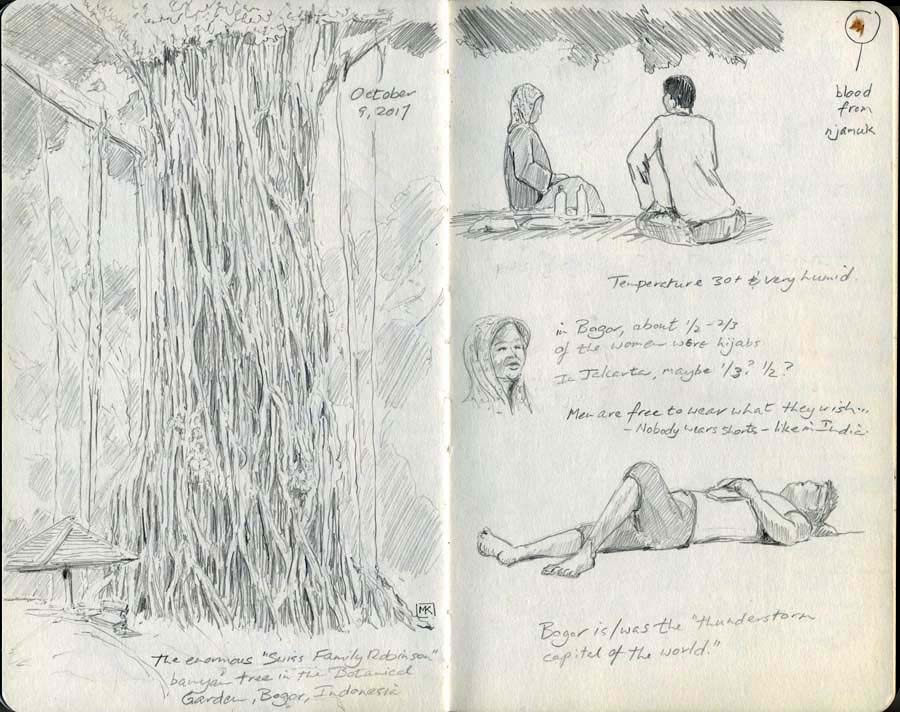 October
9, 2017
MK
The enormous "Swiss Family Robinson"
banyan tree in the Botanical
Garden, Bogor, Indonesia
blood
from
njamuk
Temperature 30+ & very humid.
in Bogor, about 1/2 - 2/3
of the women wear hijabs
In Jakarta, maybe 1/3? 1/2?
Men are free to wear what they wish...
- Nobody wears shorts - like in India.
Bogor is/was the "thunderstorm
capital of the world."